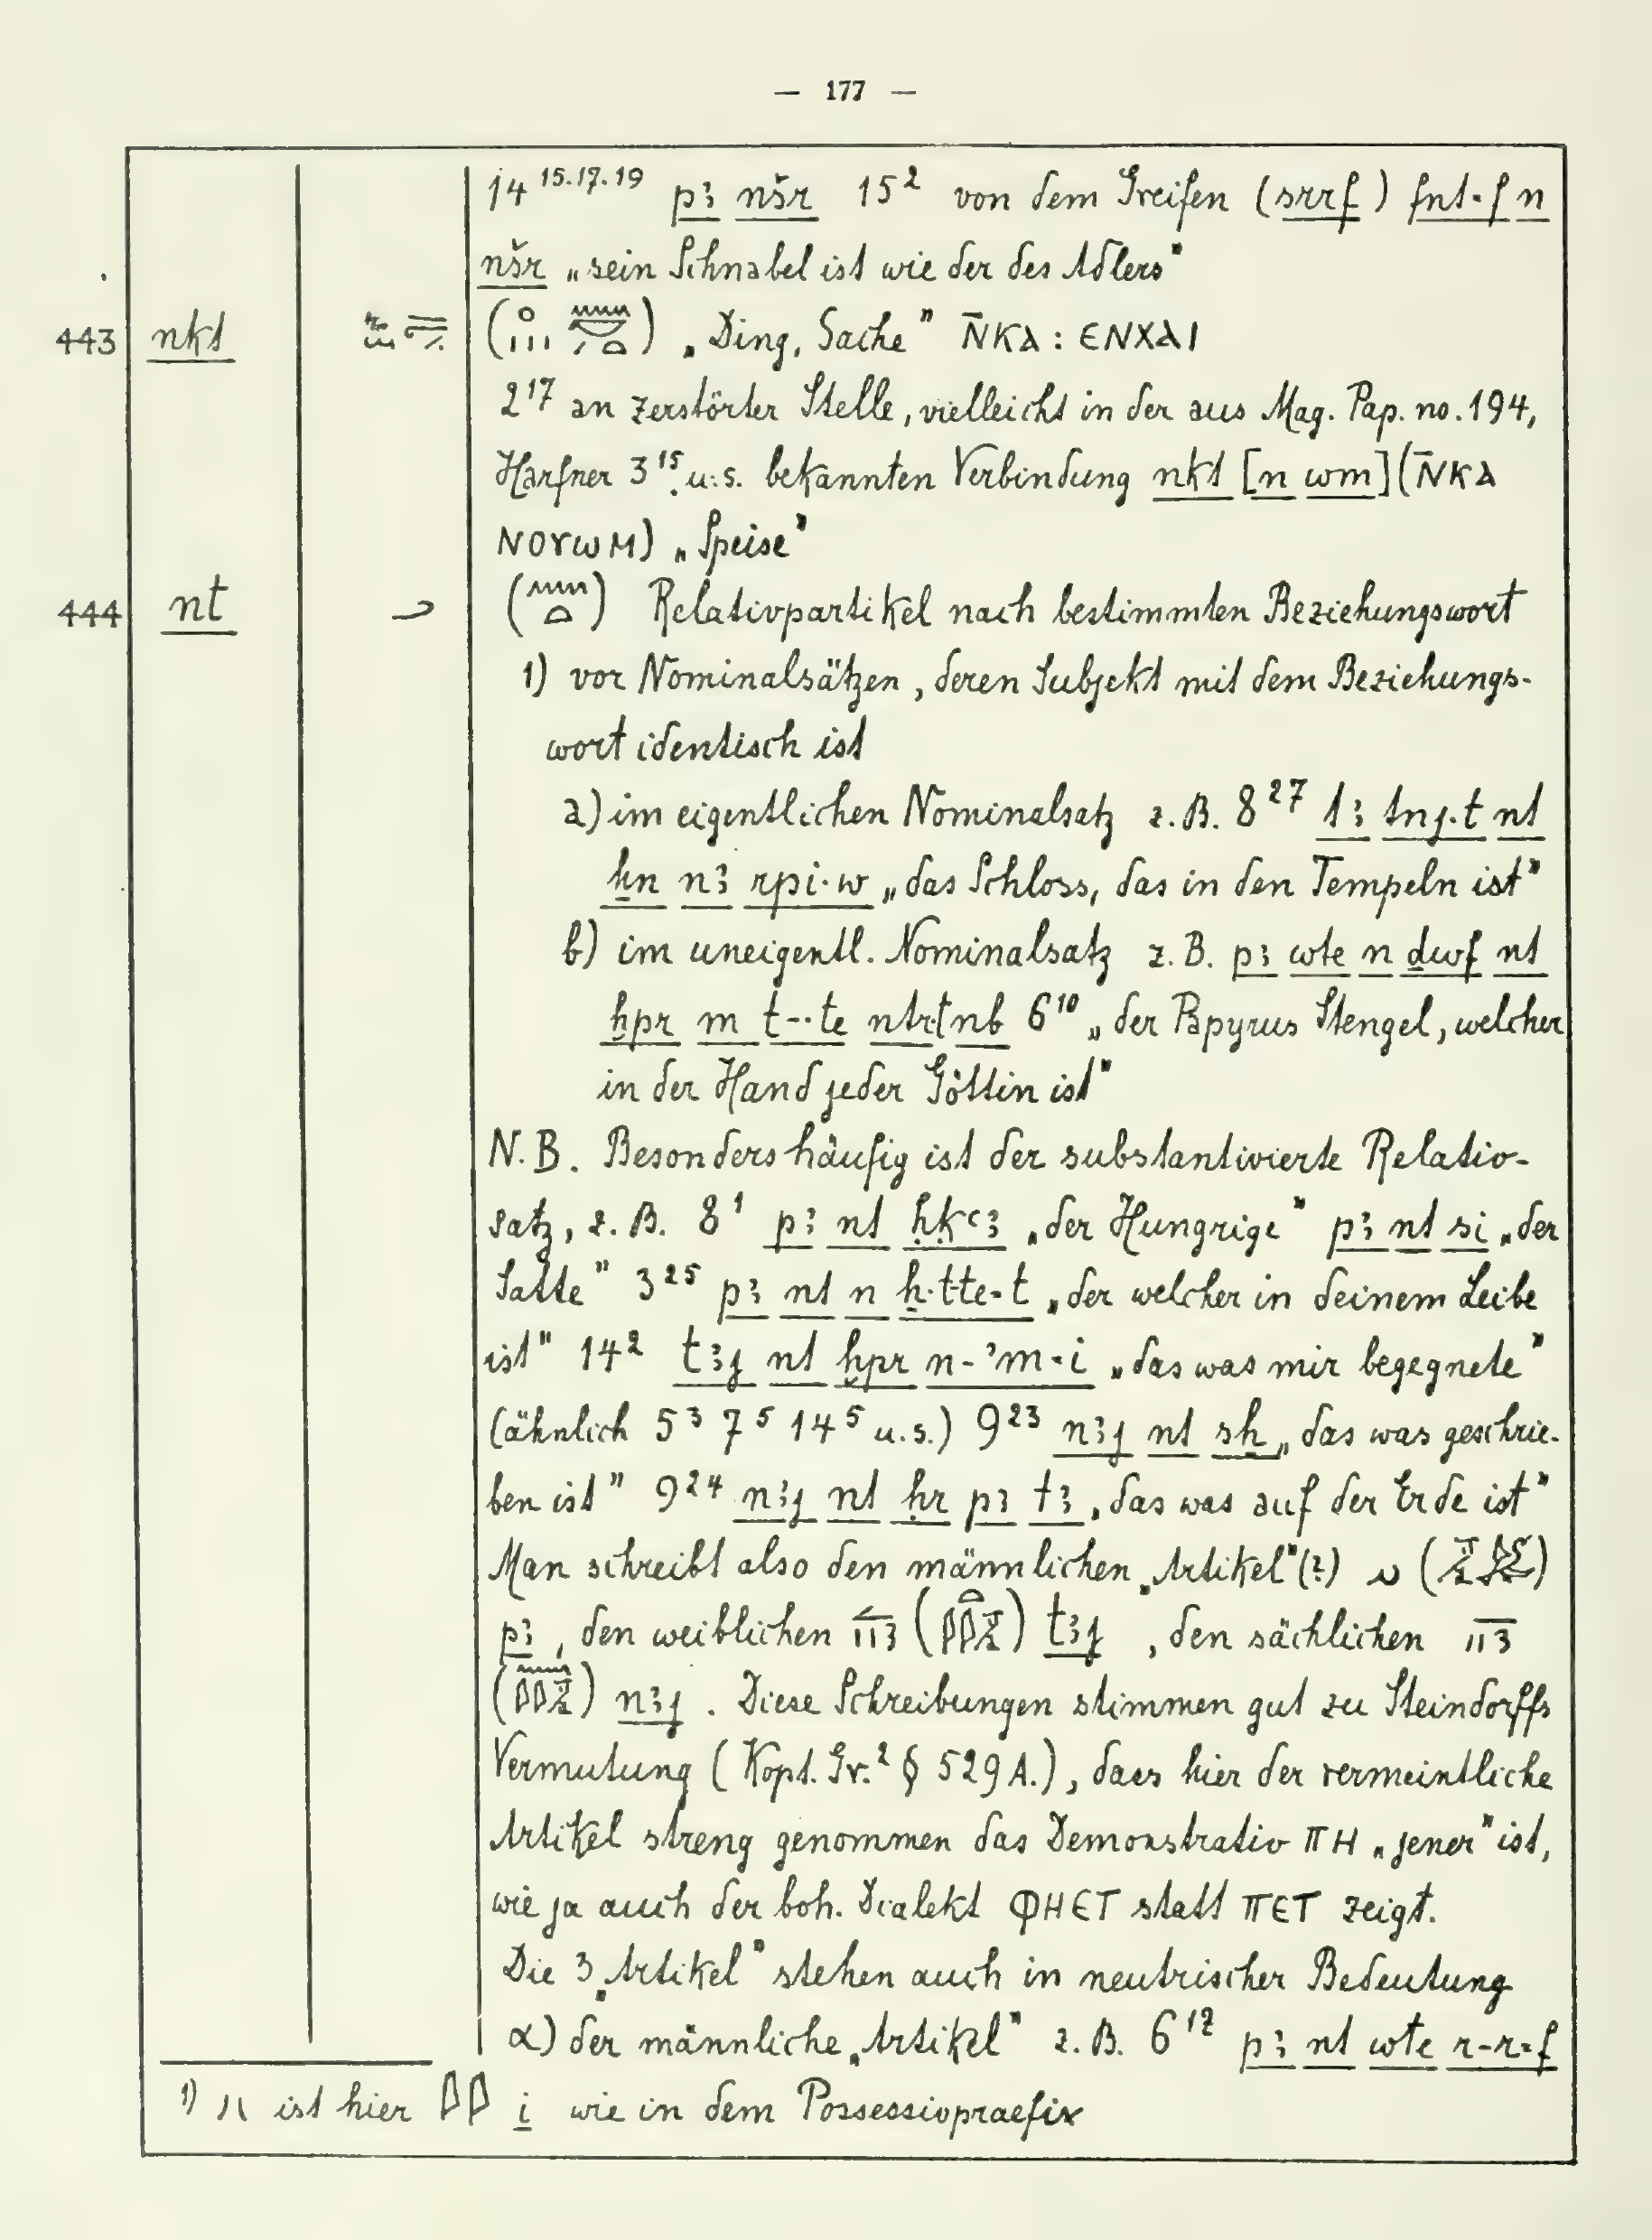 — 177 —
14 15.17.19 pꜣ nšr 15² von dem Greifen (srrf) fnt-f n
nšr „sein Schnabel ist wie der des Adlers"
443 nkt ( ) „Ding, Sache" N̄KA : ENXAI
2¹⁷ an zerstörter Stelle, vielleicht in der aus Mag. Pap. no. 194,
Harfner 3¹⁵ u.s. bekannten Verbindung nkt [n wm] (N̄KA
NOYωM) „Speise"
444 nt ( ) Relativpartikel nach bestimmten Beziehungswort
1) vor Nominalsätzen, deren Subjekt mit dem Beziehungs-
wort identisch ist
a) im eigentlichen Nominalsatz z.B. 8²⁷ tꜣ tnj.t nt
ẖn nꜣ rpi.w „das Schloss, das in den Tempeln ist"
b) im uneigentl. Nominalsatz z.B. pꜣ wte n ḏwf nt
ḫpr m t-·te ntr.t nb 6¹⁰ „der Papyrus Stengel, welcher
in der Hand jeder Göttin ist"
N.B. Besonders häufig ist der substantivierte Relativ-
satz, z.B. 8¹ pꜣ nt ḥḳꜥꜣ „der Hungrige" pꜣ nt si „der
Satte" 3²⁵ pꜣ nt n ẖ.t-te-t „der welcher in deinem Leibe
ist" 14² tꜣj nt ḫpr n-ʾm-i „das was mir begegnete"
(ähnlich 5³ 7⁵ 14⁵ u.s.) 9²³ nꜣj nt sẖ „das was geschrie-
ben ist" 9²⁴ nꜣj nt ḥr pꜣ tꜣ „das was auf der Erde ist"
Man schreibt also den männlichen „Artikel"(?) ( )
pꜣ, den weiblichen ( ) tꜣj, den sächlichen
( ) nꜣj. Diese Schreibungen stimmen gut zu Steindorffs
Vermutung (Kopt. Gr.² § 529 A.), dass hier der vermeintliche
Artikel streng genommen das Demonstrativ ΠH „jener" ist,
wie ja auch der boh. Dialekt ΦHET statt ΠET zeigt.
Die 3 „Artikel" stehen auch in neutrischer Bedeutung
α) der männliche „Artikel" z.B. 6¹² pꜣ nt wte r-r-f
1) ist hier 𓇋𓇋 i wie in dem Possessivpraefix